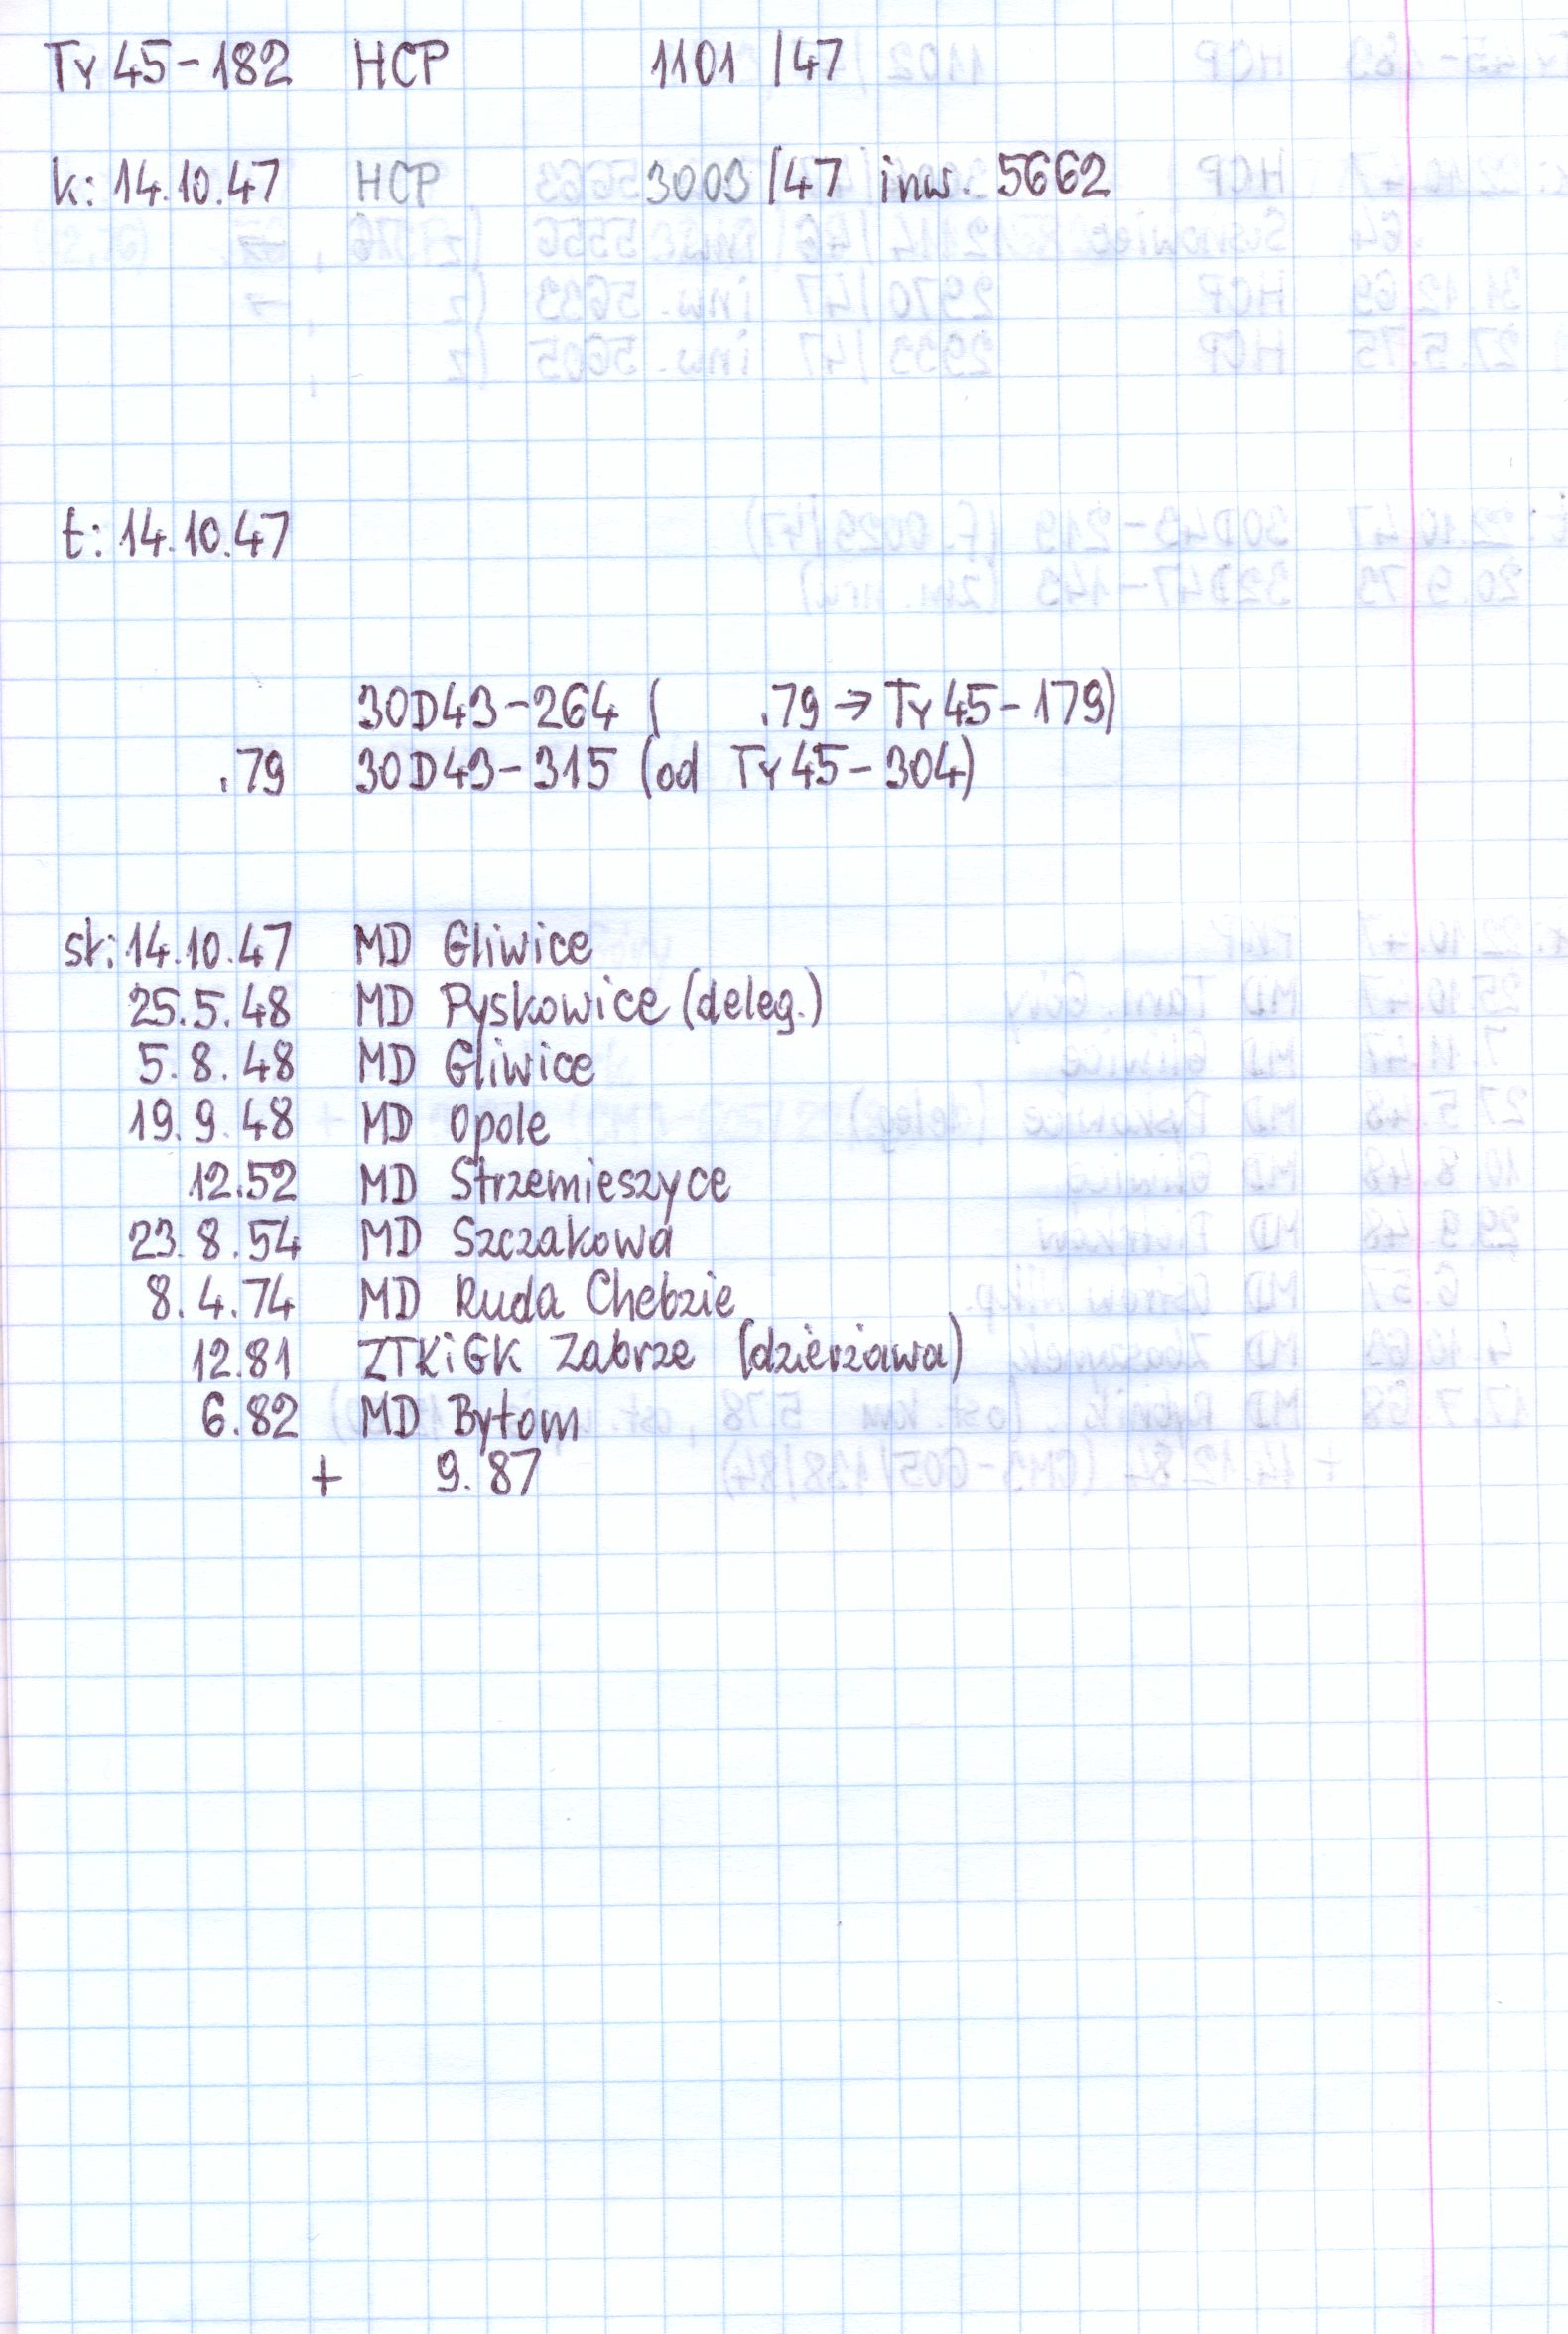 Ty 45-182 HCP 1101 /47
k: 14.10.47 HCP 3003 /47 inw. 5662
t: 14.10.47
30D43-264 ( .79 → Ty 45-179)
.79 30D43-315 (od Ty 45-304)
st: 14.10.47 MD Gliwice
25.5.48 MD Pyskowice (deleg.)
5.8.48 MD Gliwice
19.9.48 MD Opole
12.52 MD Strzemieszyce
23.8.54 MD Szczakowa
8.4.74 MD Ruda Chebzie
12.81 ZTKiGK Zabrze (dzierżawa)
6.82 MD Bytom
+ 9.87